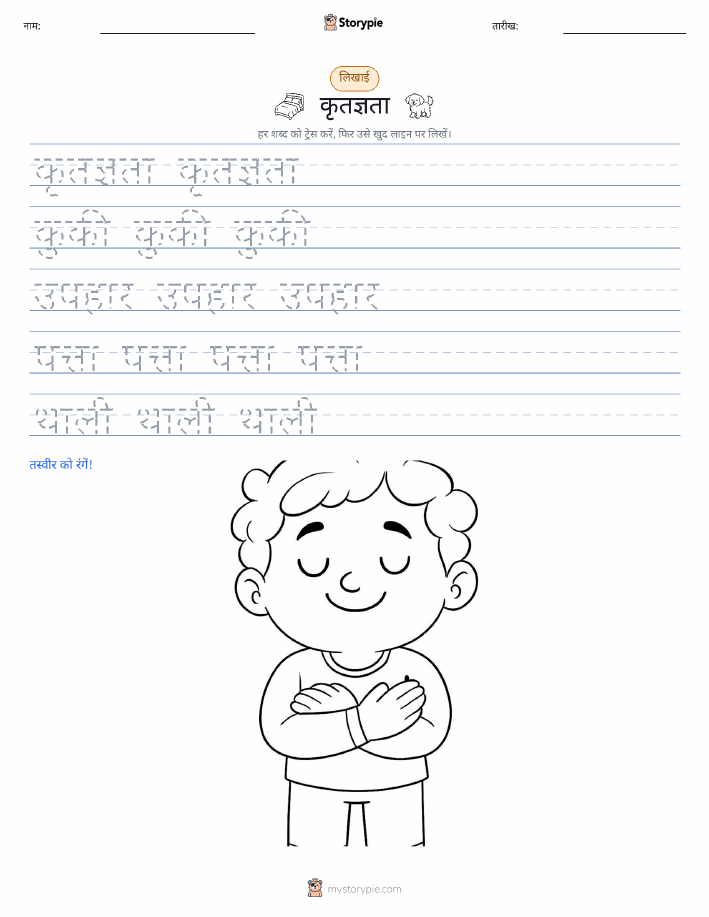 नाम: Storypie तारीख:
लिखाई
कृतज्ञता
हर शब्द को ट्रेस करें, फिर उसे खुद लाइन पर लिखें।
कृतज्ञता कृतज्ञता
कुकी कुकी कुकी
उपहार उपहार उपहार
पत्ता पत्ता पत्ता पत्ता
थाली थाली थाली
तस्वीर को रंगें!
mystorypie.com